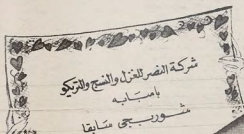 شركة النصر للغزل والنسيج والتريكو
بامبابه
شوربجى سابقا